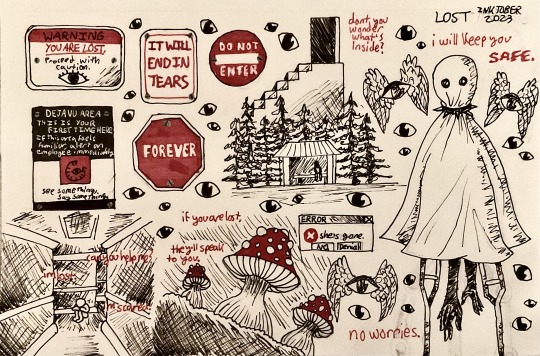 LOST
INKTOBER
2023
WARNING
YOU ARE LOST.
Proceed with
caution.
IT WILL
END IN
TEARS
DO NOT
ENTER
dont you
wonder
what's
inside?
i will keep you
SAFE.
DEJAVU AREA
THIS IS YOUR
FIRST TIME HERE
if this area feels
familiar, alert an
employee immediately
see something,
say something.
FOREVER
if you are lost,
they'll speak
to you.
ERROR
she's gone.
Denial
can you help me?
im lost.
i'm scared.
no worries.